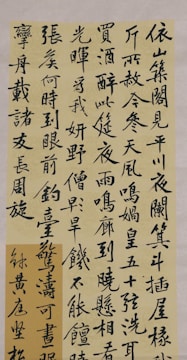 依山築閣見平川夜闌箕斗插屋椽
斤所赦今參天風鳴媧皇五十弦洗耳
買酒醉此筵夜雨鳴廊到曉懸相看
光暉為我妍野僧旱饑不能饘
張侯何時到眼前釣臺驚濤可晝眠
攣舟載諸友長周旋
錄黃庭堅松